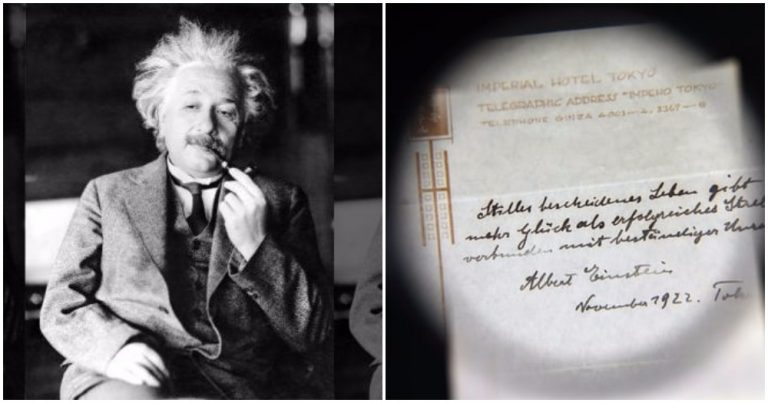 IMPERIAL HOTEL TOKYO
TELEGRAPHIC ADDRESS "IMPEHO TOKYO
TELEPHONE GINZA
Stilles bescheidenes Leben gibt
mehr Glück als erfolgreiches Streb
verbunden mit beständiger Unru
Albert Einstein
November 1922. Tok